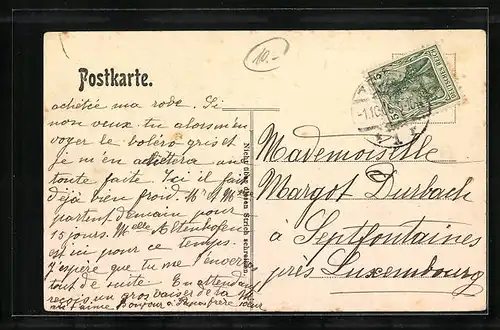 10.-
Postkarte.
achetée ma robe. Si
non veux tu alors m'en
voyer le boléro gris et
je m'en achèterai une
toute faite. Ici il fait
déjà bien froid. Mr et Mme
partent demain pour
15 jours. Melle Altenhofen
est ici pour ce temps.
J'espère que tu me l'enverras
tout de suite. En attendant
reçois un gros baiser de ta
qui t'aime. Bonjour à Papa frère
Nicht über diesen Strich schreiben.
DEUTSCHES REICH
5
5
Mademoiselle
Margot Durbach
à Septfontaines
près Luxembourg